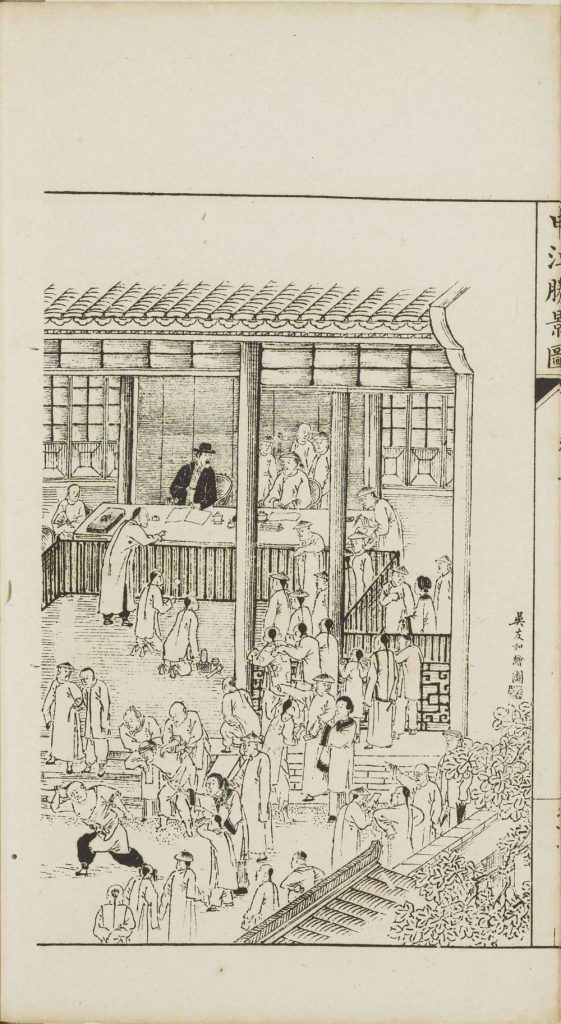 申江勝景圖
吳友如繪圖